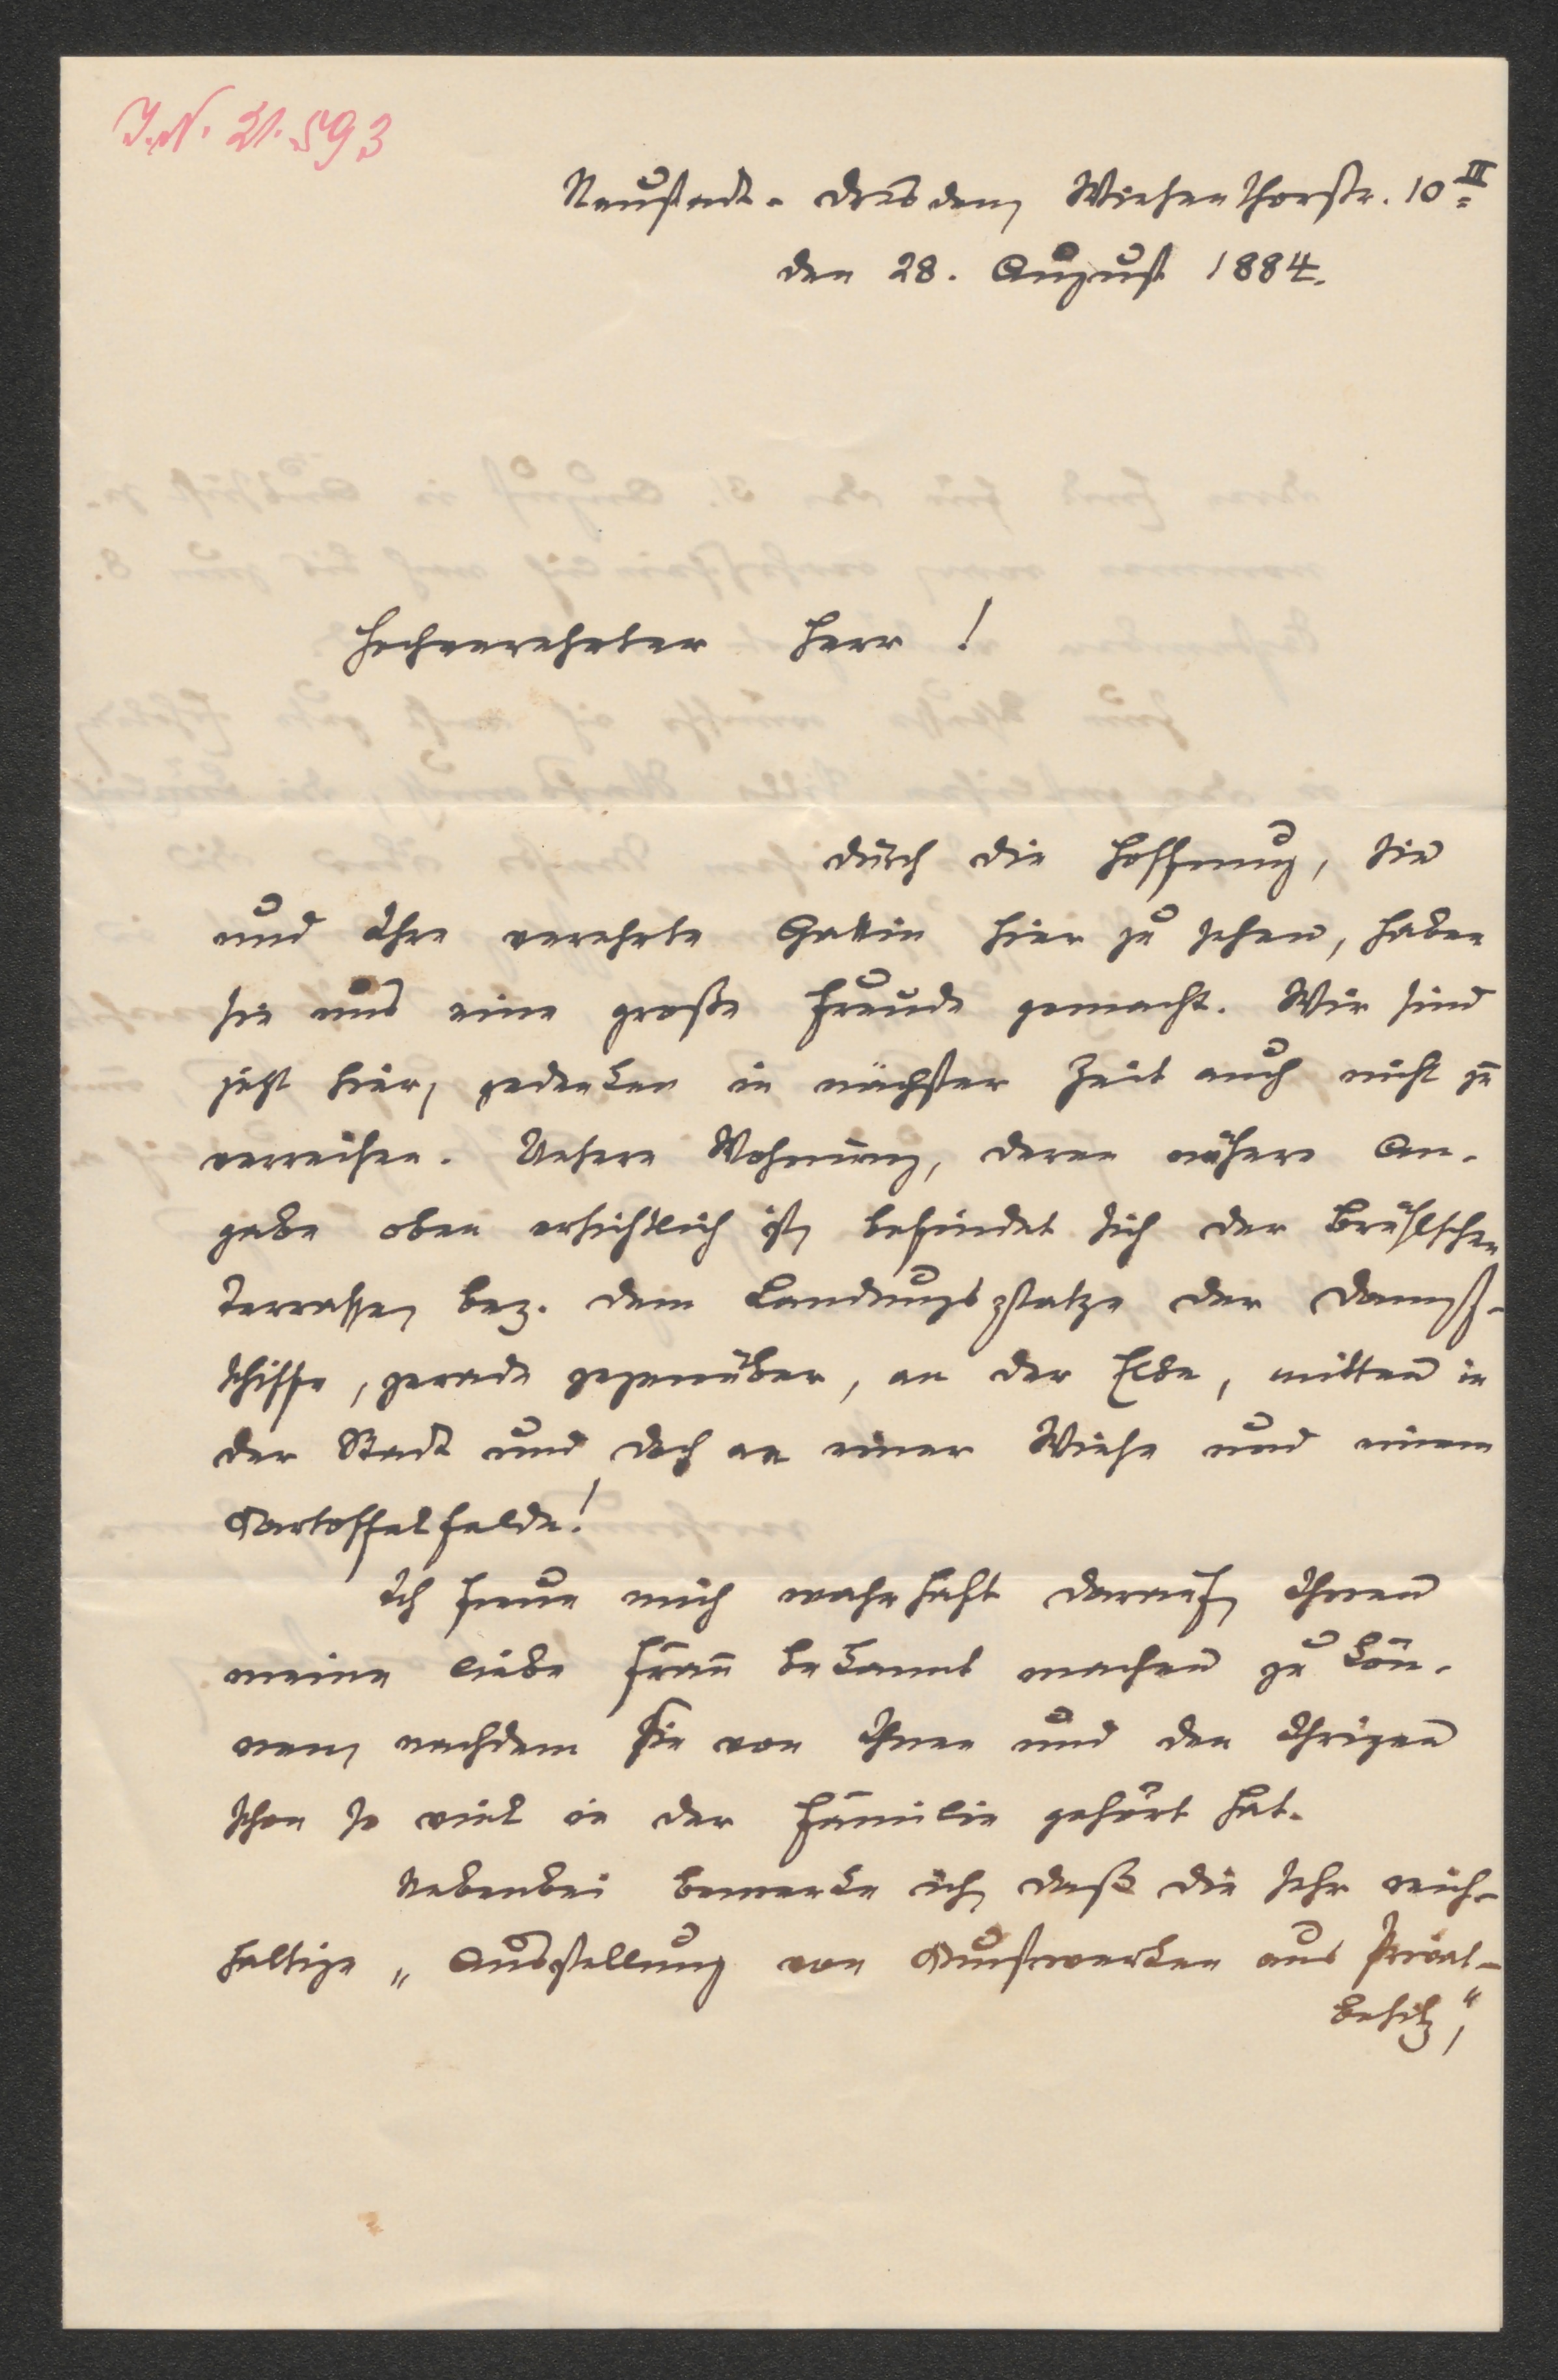 J.N. 21.593
Neustadt-Dresden, Wiesenthorstr. 10 III
den 28. August 1884.
Hochverehrter Herr!
Durch die Hoffnung, Sie
und Ihre verehrte Gattin hier zu sehen, haben
Sie uns eine große Freude gemacht. Wir sind
jetzt hier, gedenken in nächster Zeit auch nicht zu
verreisen. Unsere Wohnung, deren nähere An-
gabe oben ersichtlich ist, befindet sich der Brühlschen
Terrasse, bez. dem Landungsplatze der Dampf-
schiffe, gerade gegenüber, an der Elbe, mitten in
der Stadt und doch an einer Wiese und einem
Kartoffelfelde!
Ich freue mich wahrhaft darauf, Ihnen
meine liebe Frau bekannt machen zu kön-
nen, nachdem sie von Ihnen und den Ihrigen
schon so viel in der Familie gehört hat.
Nebenbei bemerke ich, daß die sehr reich-
haltige „Ausstellung von Kunstwerken aus Privat-
besitz",